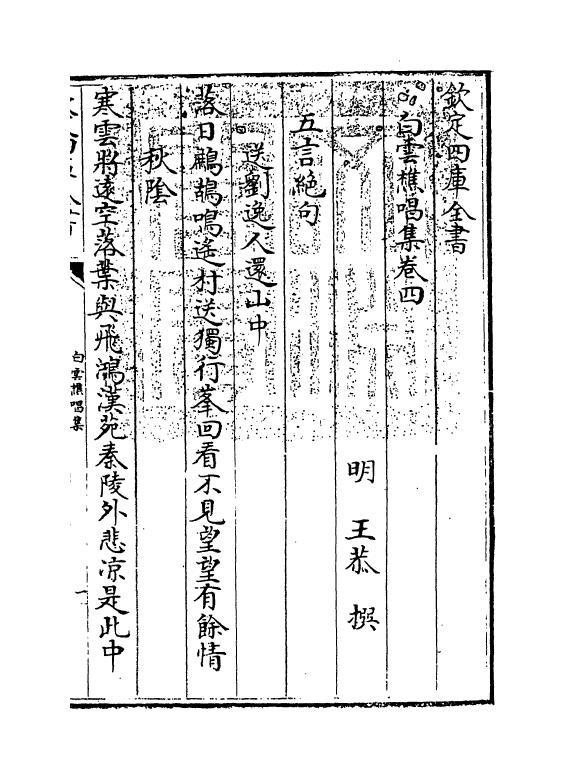 欽定四庫全書
白雲樵唱集卷四
明 王恭 撰
五言絶句
送劉逸人還山中
落日鷓鴣鳴遙村送獨行峯回看不見望望有餘情
秋陰
寒雲將遠空落葉與飛鴻漢苑秦陵外悲凉是此中
白雲樵唱集
一